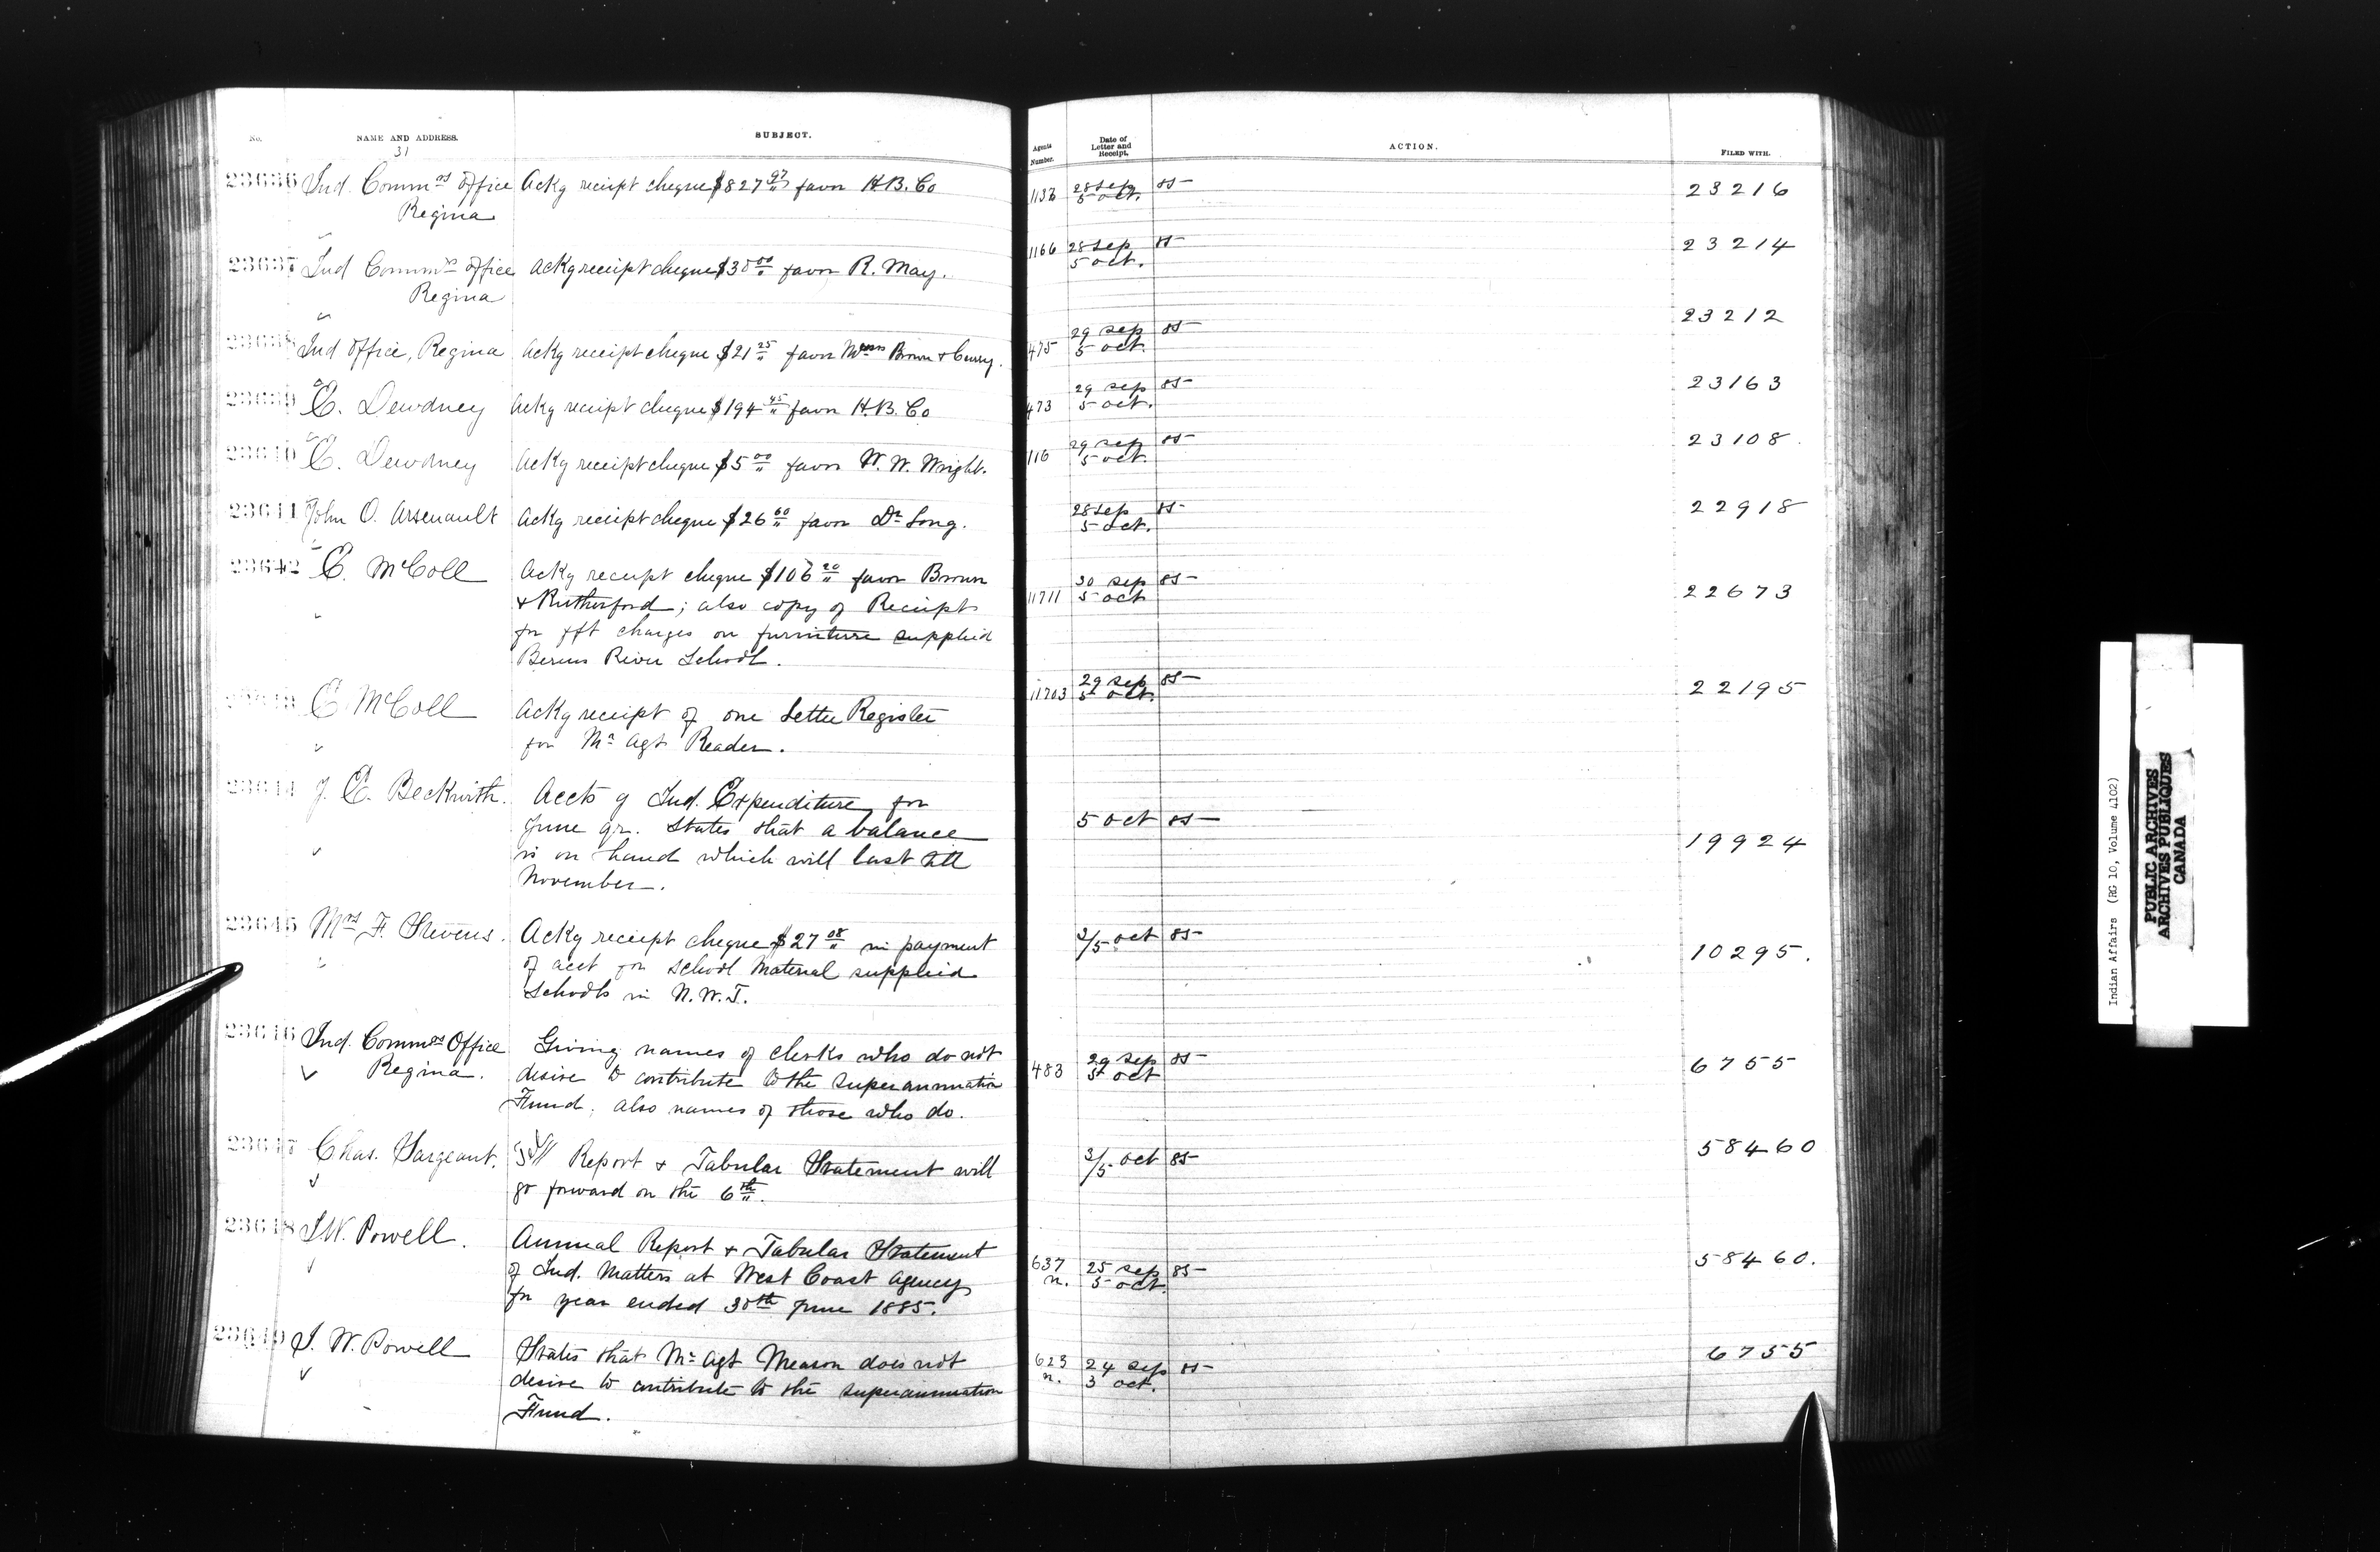 No. NAME AND ADDRESS. SUBJECT. Agents Number. Date of Letter and Receipt. ACTION. FILED WITH.
31
23636 Ind. Comm^rs Office Ackg receipt cheque $827 97 favor H.B. Co 28 Sep 85 23216
Regina 5 oct.
23637 Ind Comm^rs Office Ackg receipt cheque favor R. May. 1166 28 Sep 85 23214
Regina 5 oct.
23638 Ind Office, Regina Ackg receipt cheque $21 25 favor Mess^rs Brown & Curry. 475 29 Sep 85 23212
5 oct.
23639 E. Dewdney Ackg receipt cheque $194 45 favor H.B. Co 473 29 Sep 85 23163
5 oct.
23640 E. Dewdney Ackg receipt cheque $5 00 favor W. W. Wright. 116 29 Sep 85 23108
5 oct.
23641 John O. Arsenault Ackg receipt cheque $26 60 favor Dr Long. 28 Sep 85 22918
5 oct.
23642 E. McColl Ackg receipt cheque $106 20 favor Brown 11711 30 Sep 85 22673
& Rutherford; also copy of Receipt 5 oct
for frt charges on furniture supplied
Berens River School.
23643 E McColl Ackg receipt of one Letter Register 11703 29 Sep 85 22195
for Mr Agt Reader. 5 oct.
23644 J. E. Beckwith. Accts of Ind. Expenditure for 5 oct 85 19924
June qr. States that a balance
is on hand which will last till
November.
23645 Mrs F. Stevens. Ackg receipt cheque $27 08 in payment 2/5 oct 85 10295.
of acct for School Material supplied
Schools in N.W.T.
23646 Ind. Comm^rs Office Giving names of clerks who do not 483 29 Sep 85 6755
Regina. desire to contribute to the Superannuation 5 oct
Fund, also names of those who do.
23647 Chas. Sargeant. Report & Tabular Statement will 2/5 oct 85 58460
go forward on the 6th.
23648 I.W. Powell. Annual Report & Tabular Statement 637 25 Sep 85 58460.
of Ind. Matters at West Coast Agency n. 5 oct.
for year ended 30th June 1885.
23649 I. W. Powell States that Mr Agt Meason does not 623 24 Sep 85 6755
desire to contribute to the Superannuation n. 3 oct.
Fund.
Indian Affairs (RG 10, Volume 4102)
PUBLIC ARCHIVES
ARCHIVES PUBLIQUES
CANADA